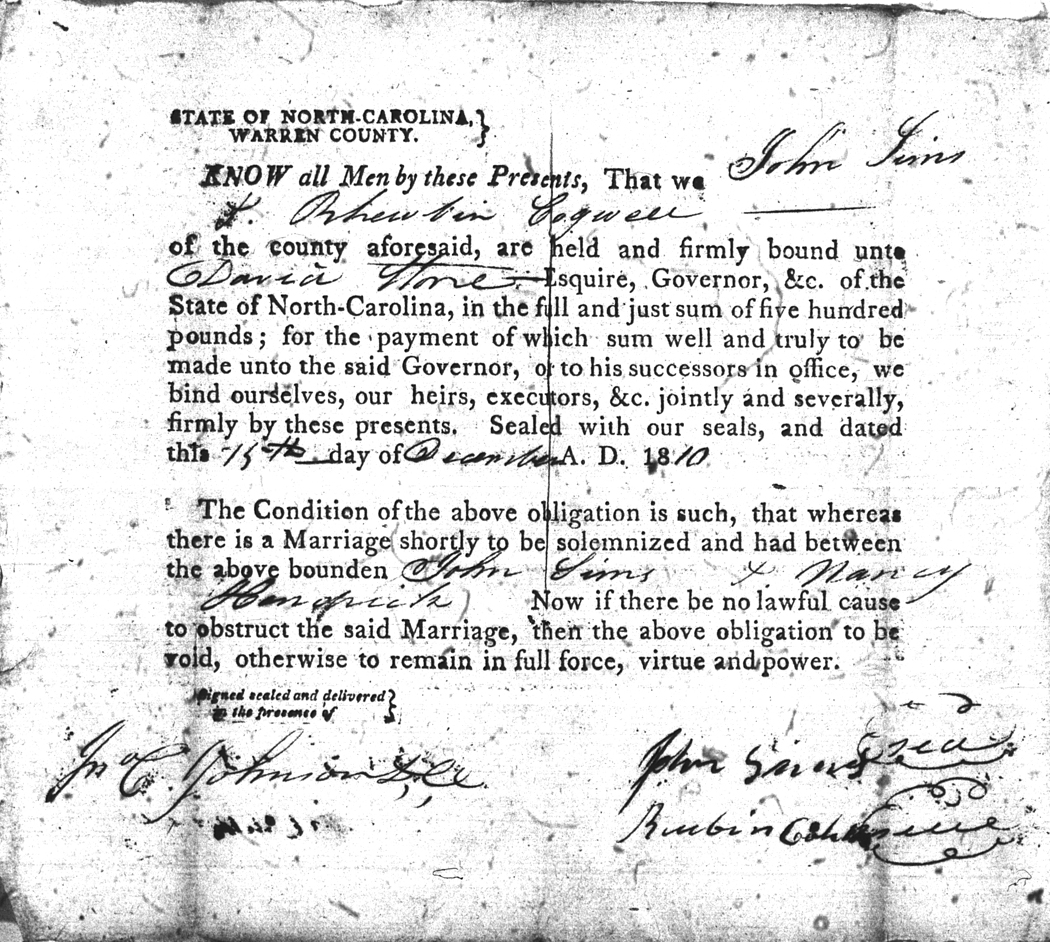 STATE OF NORTH-CAROLINA,}
WARREN COUNTY.
KNOW all Men by these Presents, That we John Sims
& Rhewbin Cogwell
of the county aforesaid, are held and firmly bound unto
David Stone Esquire, Governor, &c. of the
State of North-Carolina, in the full and just sum of five hundred
pounds; for the payment of which sum well and truly to be
made unto the said Governor, or to his successors in office, we
bind ourselves, our heirs, executors, &c. jointly and severally,
firmly by these presents. Sealed with our seals, and dated
this 15th day of December A. D. 1810
The Condition of the above obligation is such, that whereas
there is a Marriage shortly to be solemnized and had between
the above bounden John Sims & Nancy
Hendrick Now if there be no lawful cause
to obstruct the said Marriage, then the above obligation to be
void, otherwise to remain in full force, virtue and power.
Signed sealed and delivered}
in the presence of
Jno C. Johnson
John Sims seal
Reubin seal